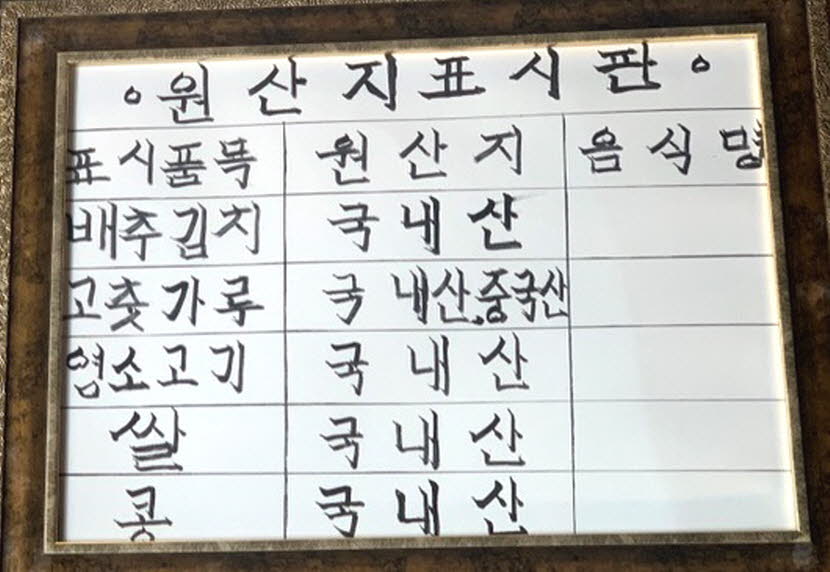 ◦원산지표시판◦
표시품목 원산지 음식명
배추김치 국내산
고춧가루 국내산,중국산
염소고기 국내산
쌀 국내산
콩 국내산